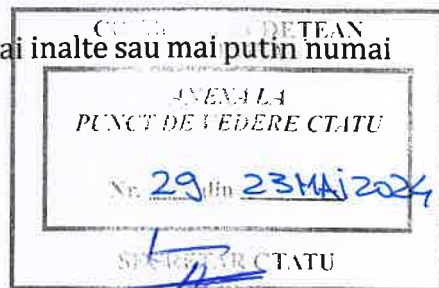 DEȚEAN
ai inalte sau mai putin numai
ANEXA LA
PUNCT DE VEDERE CTATU
Nr. 29 din 23 MAI 2024
SECRETAR CTATU